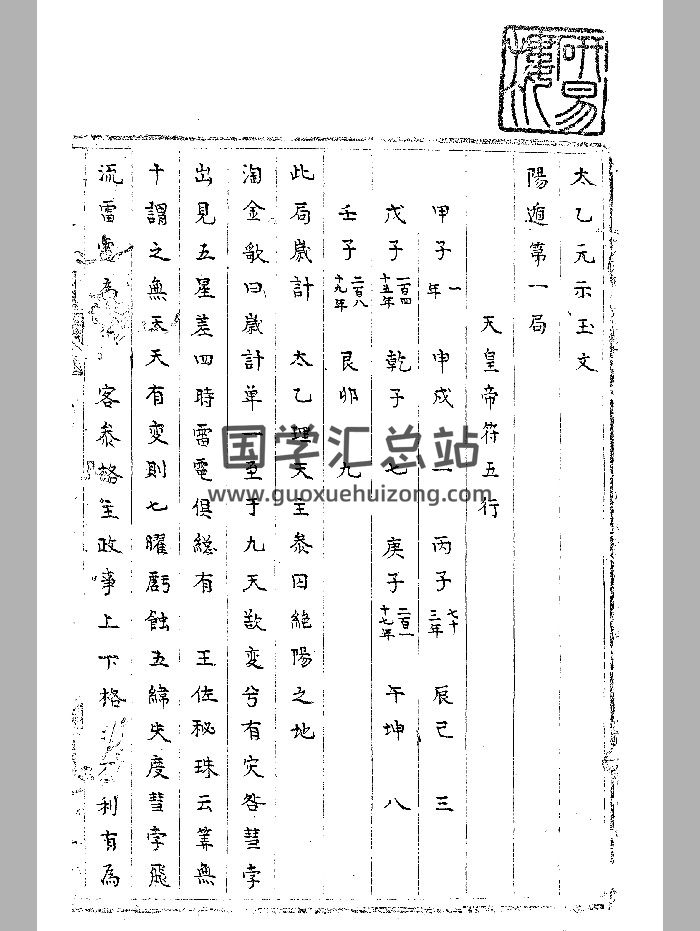 研易樓
太乙元示玉文
陽遁第一局
天皇帝符五行
甲子一年 申戌一 丙子七十三年 辰巳 三
戊子一百四十五年 乾子七 庚子二百一十七年 午坤 八
壬子二百八十九年 艮卯 九
此局嵗計 太乙理天主叅囚絶陽之地
淘金歌曰嵗計单一至于九天欲变兮有灾咎彗孛
出見五星差四時雷電俱総有 王佐秘珠云筭無
十謂之無天天有变則七曜虧蝕五緯失度彗孛飛
流雷 客叅格主政事上下格 利有為
国学汇总站
www.guoxuehuizong.com